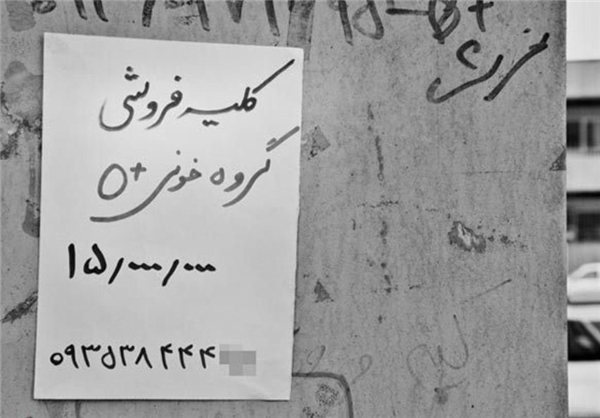 B+
کلیه فروشی
گروه خونی O+
۱۵/۰۰۰/۰۰۰
۰۹۳۵۳۸۴۴۴